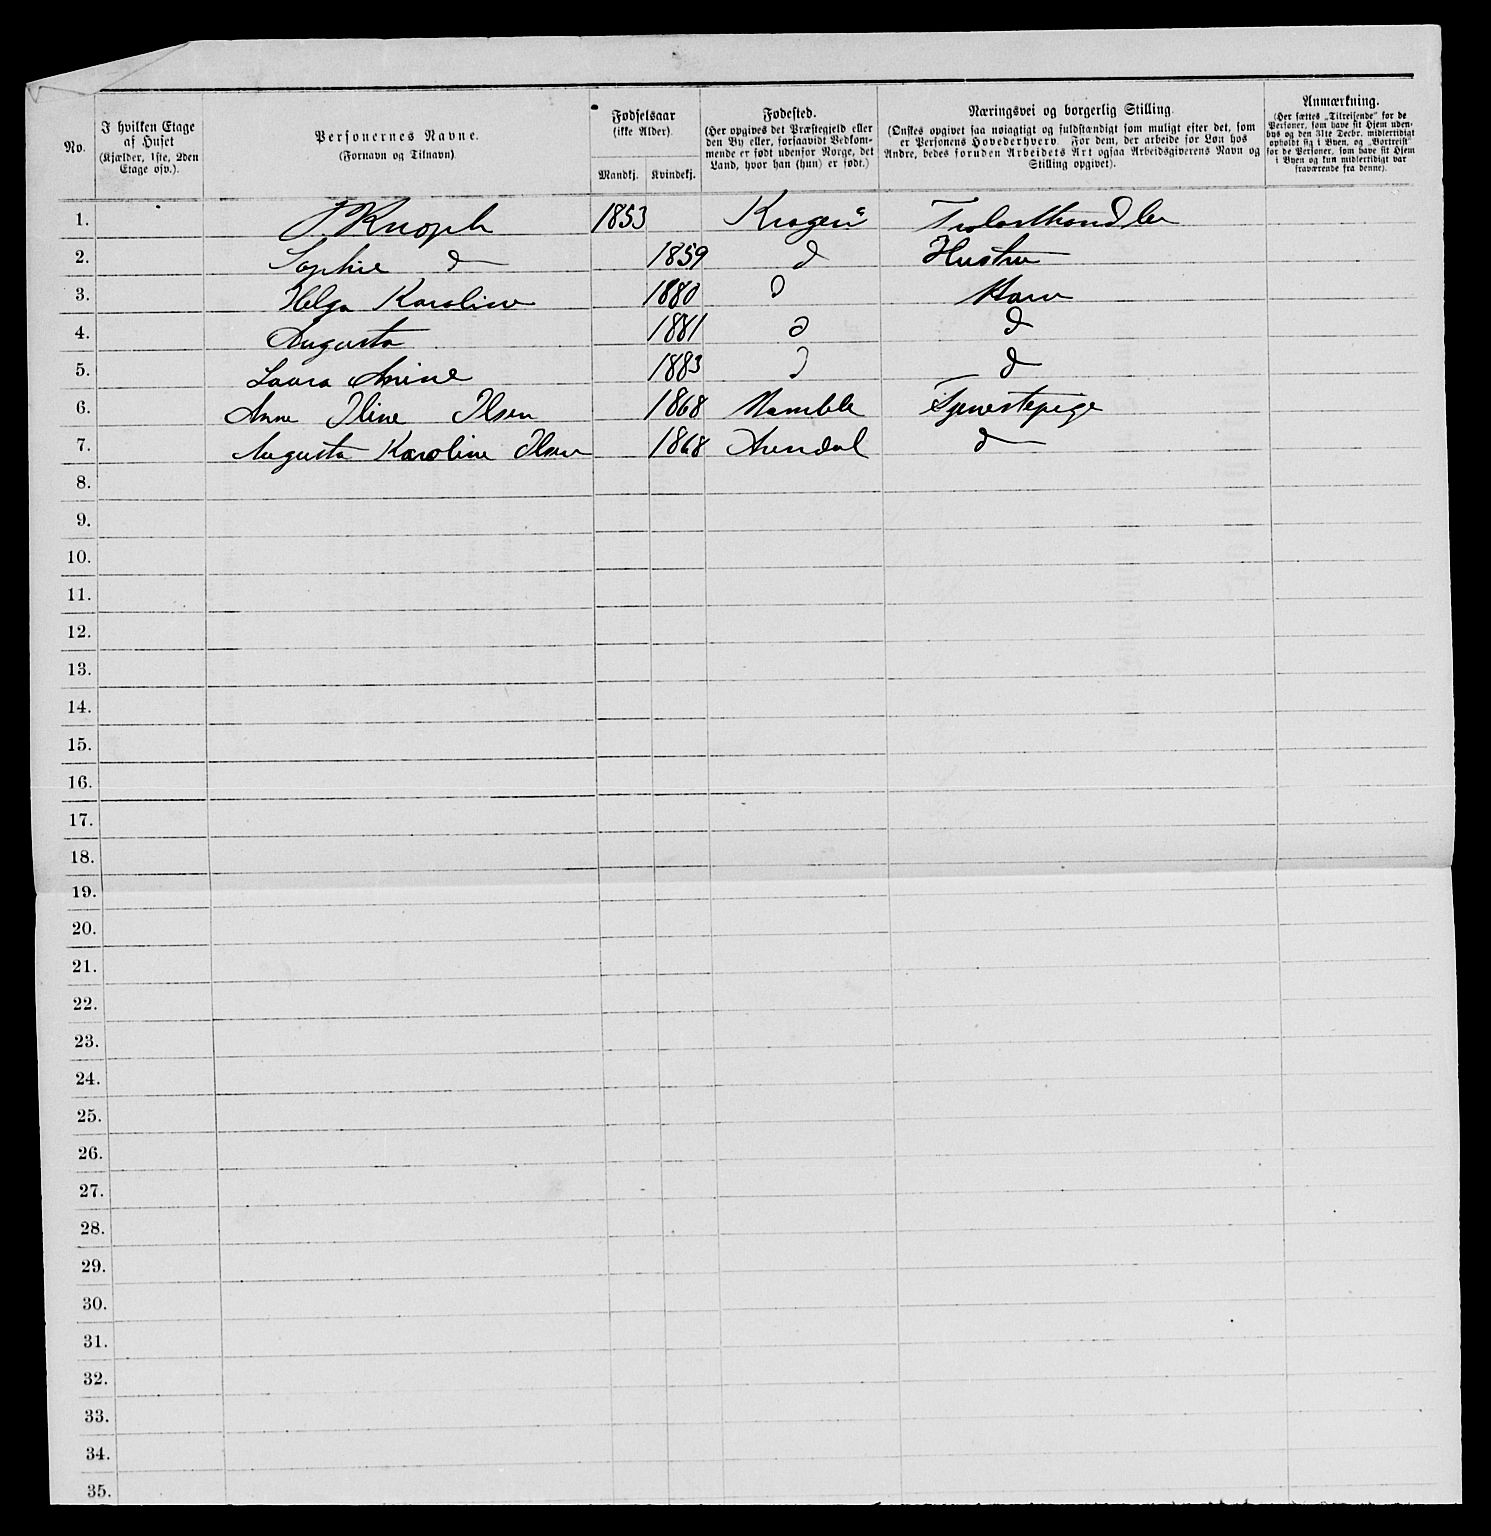 No.
I hvilken Etage
af Huset
(Kjælder, 1ste, 2den
Etage osv.).
Personernes Navne.
(Fornavn og Tilnavn)
Fødselsaar
(ikke Alder).
Mandkj. Kvindekj.
Fødested.
(Her opgives det Præstegjeld eller
den By eller, forsaavidt Vedkom-
mende er født udenfor Norge, det
Land, hvor han (hun) er født.)
Næringsvei og borgerlig Stilling.
(Ønskes opgivet saa nøiagtigt og fuldstændigt som muligt efter det, som
er Personens Hovederhverv. For dem, der arbeide for Løn hos
Andre, bedes foruden Arbeidets Art ogsaa Arbeidsgiverens Navn og
Stilling opgivet).
Anmærkning.
(Her sættes „Tilreisende" for de
Personer, som have sit Hjem uden-
bys og den 31te Decbr. midlertidigt
opholdt sig i Byen, og „Bortreist"
for de Personer, som have sit Hjem
i Byen og kun midlertidigt var
fraværende fra denne).
1. Knoph 1853 Kragerø Trælasthandler
2. Sophie d 1859 d Hustru
3. Helga Karoline 1880 d Barn
4. Augusta 1881 d d
5. Laura Amine 1883 d d
6. Anne Iline Olsen 1868 Bamble Tjenestepige
7. Augusta Karoline Olsen 1868 Arendal d
8.
9.
10.
11.
12.
13.
14.
15.
16.
17.
18.
19.
20.
21.
22.
23.
24.
25.
26.
27.
28.
29.
30.
31.
32.
33.
34.
35.